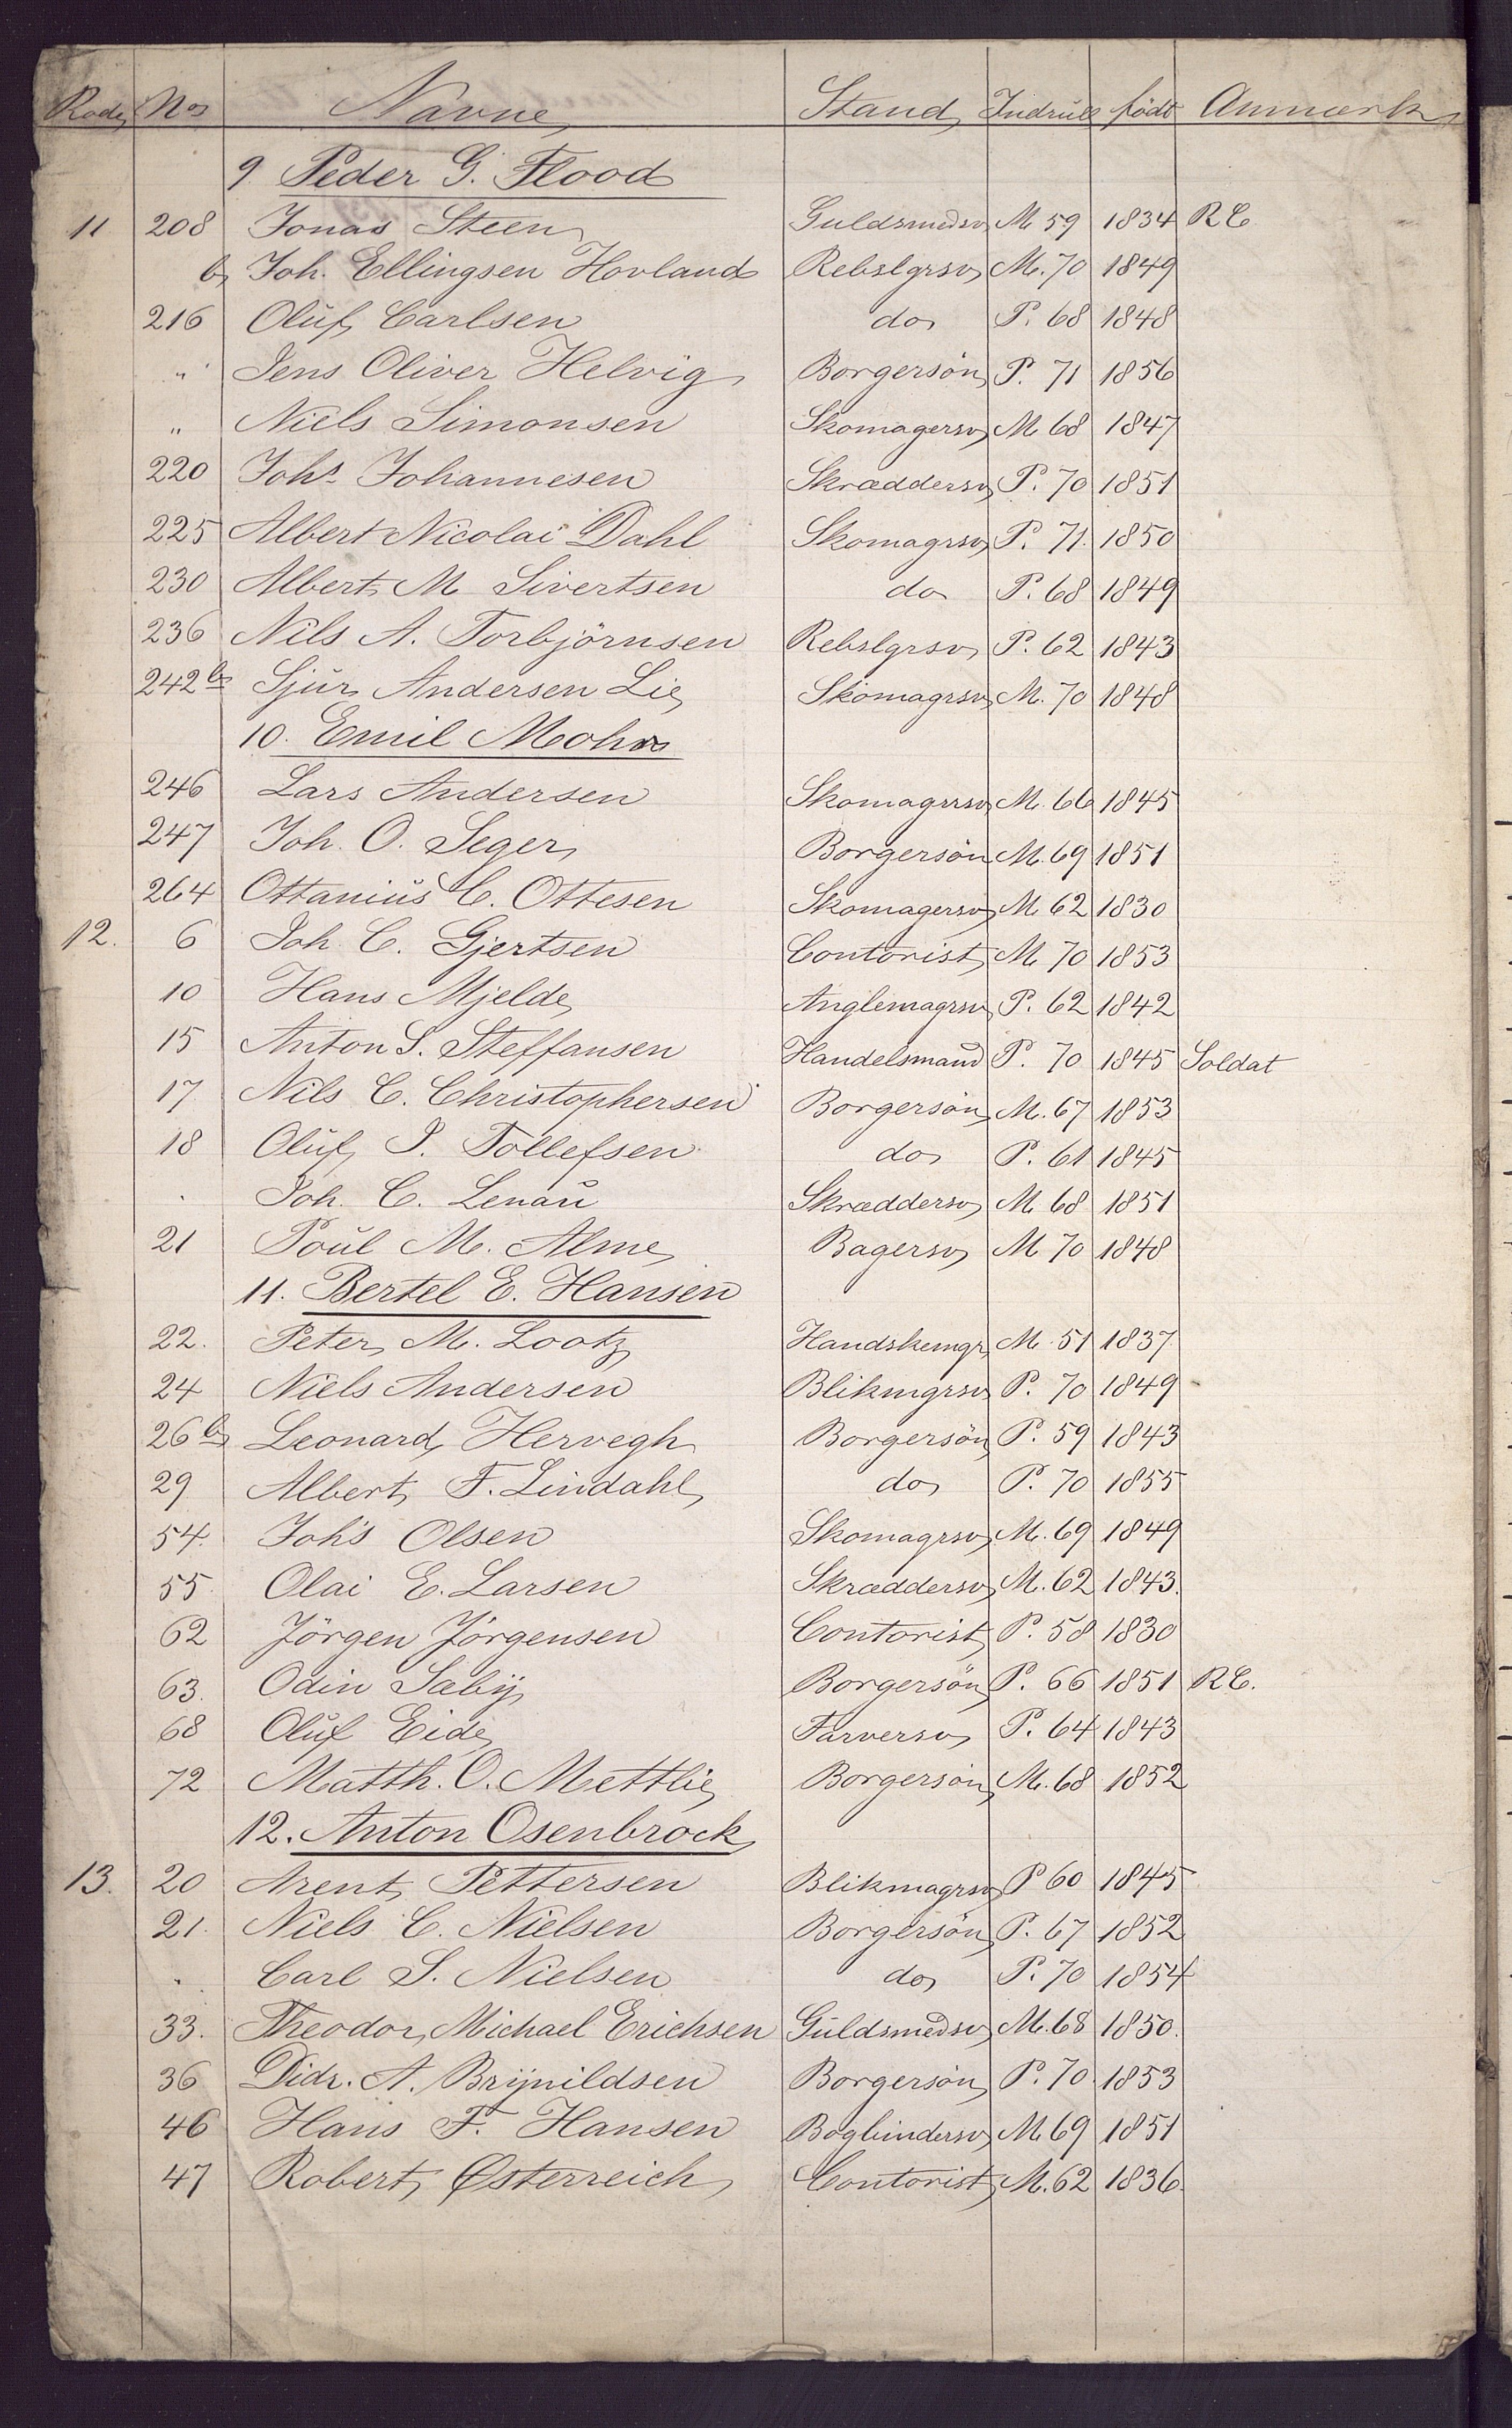 Rode No Navne Stand Indrull født Anmærk
9 Peder G. Flood
11 208 Jonas Steen Guldsmedsv M 59 1834 RC
b Joh. Ellingsen Hovland Rebslgrsv M. 70 1849
216 Oluf Carlsen do P. 68 1848
" Jens Oliver Helvig Borgersön P. 71 1856
" Niels Simonsen Skomagersv M 68 1847
220 Johs Johannesen Skrædersv P. 70 1851
225 Albert Nicolai Dahl Skomagrsv P. 71. 1850
230 Albert M Sivertsen do P. 68 1849
236 Nils A. Torbjörnsen Rebslgrsv P. 62 1843
242 b Sjur Andersen Lie Skomagrsv M. 70 1848
10. Emil Mohn
246 Lars Andersen Skomagrsv M. 66 1845
247 Joh. O. Seger Borgersön M. 69 1851
264 Ottanius C. Ottesen Skomagersv M 62 1830
12. 6 Joh. C. Gjertsen Contorist M 70 1853
10 Hans Mjelde Anglemagrsv P. 62 1842
15 Anton S. Steffansen Handelsmand P. 70 1845 Soldat
17 Nils C. Christophersen Borgersön M. 67 1853
18 Oluf I. Tollefsen do P. 61 1845
. Joh. C. Lenau Skrædersv M 68 1851
21 Poul M. Alme Bagersv M 70 1848
11. Bertel E. Hansen
22. Peter M. Lootz Handskemgr M. 51 1837
24 Niels Andersen Blikmgrsv P. 70 1849
26 b Leonard Hervegh Borgersön P. 59 1843
29 Albert F. Lindahl do P. 70 1855
54. Johs Olsen Skomagrsv M. 69 1849
55. Olai E. Larsen Skræddersv M. 62 1843.
62 Jörgen Jörgensen Contorist P. 58 1830
63. Odin Sæby Borgersön P. 66 1851 RC.
68 Oluf Eide Farversv P. 64 1843
72 Matth. O. Mettlie Borgersön M. 68 1852
12. Anton Osenbrock
13. 20 Arent Pettersen Blikmagrsv P 60 1845
21. Niels C. Nielsen Borgersön P. 67 1852
. Carl S. Nielsen do P. 70 1854
33. Theodor Michael Erichsen Guldsmedsv M. 68 1850.
36 Didr. A. Brynildsen Borgersön P. 70 1853
46 Hans F. Hansen Bogbindersv M 69 1851
47 Robert Østerreich Contorist M. 62 1836.